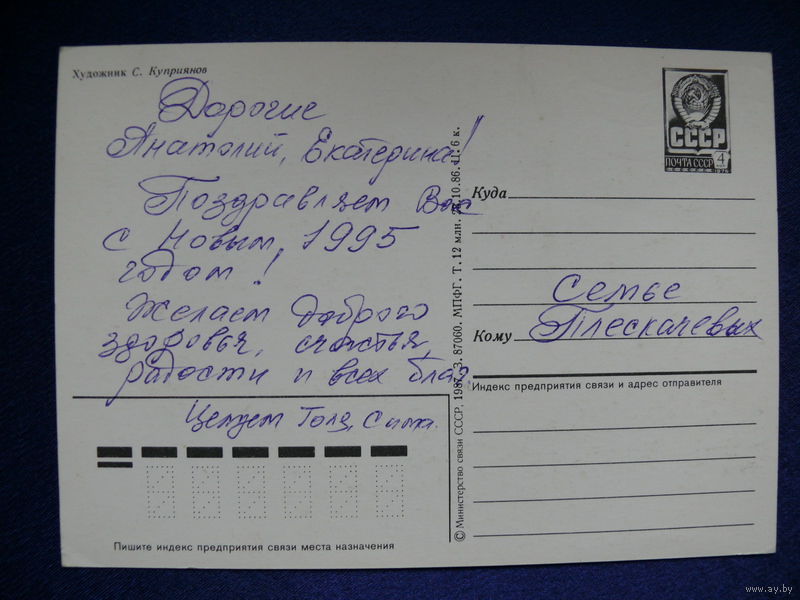 Художник С. Куприянов
Дорогие
Анатолий, Екатерина!
Поздравляем Вас
с Новым 1995
годом!
Желаем доброго
здоровья, счастья,
радости и всех благ.
Целуем
СССР
ПОЧТА СССР 4
Куда
Семье
Кому Плескачевых
Индекс предприятия связи и адрес отправителя
Пишите индекс предприятия связи места назначения
© Министерство связи СССР. 1987. З. 87060. МПФГ. Т. 12 млн. 10.86. Ц. 6 к.
www.ay.by